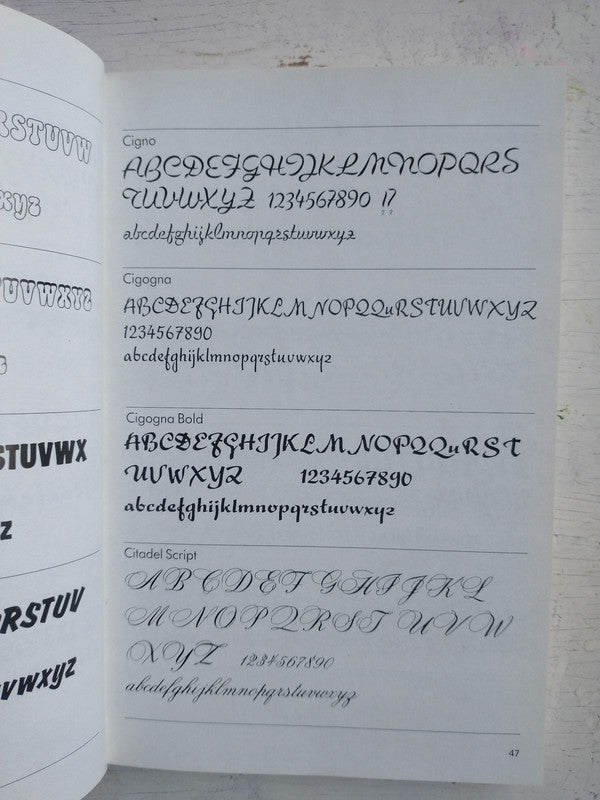 RSTUVW
xyz
TUVWXYZ
z
STUVWX
Z
RSTUV
vwxyz
Cigno
ABCDEFGHIJKLMNOPQRS
TUVWXYZ 1234567890 17
abcdefghijklmnopqrstuvwxyz
Cigogna
ABCDEFGHIJKLMNOPQQuRSTUVWXYZ
1234567890
abcdefghijklmnopqrstuvwxyz
Cigogna Bold
ABCDEFGHIJKLMNOPQQuRST
UVWXYZ 1234567890
abcdefghijklmnopqrstuvwxyz
Citadel Script
ABCDEFGHIJKL
MNOPQRSTUVW
XYZ 1234567890
abcdefghijklmnopqrstuvwxyz
47